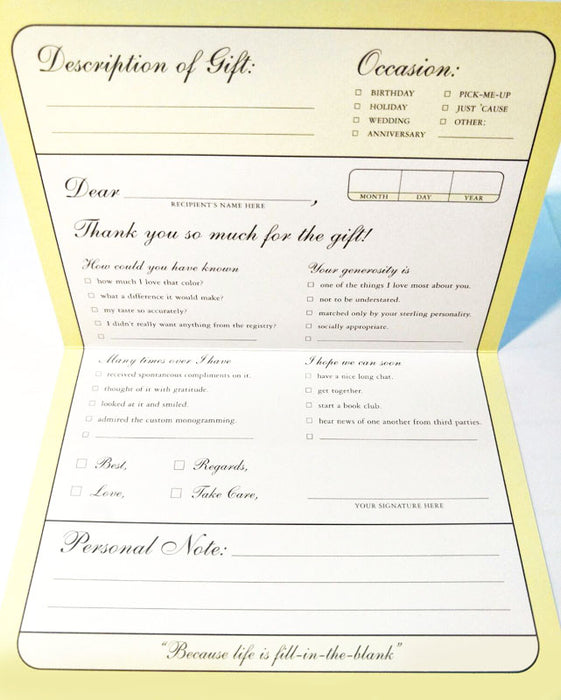 Description of Gift:
Occasion:
BIRTHDAY
PICK-ME-UP
HOLIDAY
JUST 'CAUSE
WEDDING
OTHER:
ANNIVERSARY
Dear ,
RECIPIENT'S NAME HERE
MONTH DAY YEAR
Thank you so much for the gift!
How could you have known
how much I love that color?
what a difference it would make?
my taste so accurately?
I didn't really want anything from the registry?
Your generosity is
one of the things I love most about you.
not to be understated.
matched only by your sterling personality.
socially appropriate.
Many times over I have
received spontaneous compliments on it.
thought of it with gratitude.
looked at it and smiled.
admired the custom monogramming.
I hope we can soon
have a nice long chat.
get together.
start a book club.
hear news of one another from third parties.
Best, Regards,
Love, Take Care,
YOUR SIGNATURE HERE
Personal Note:
"Because life is fill-in-the-blank"